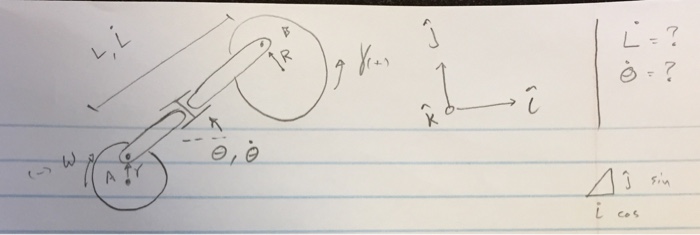 L, L̇
B
R
γ(+)
ĵ
k̂
î
L̇ = ?
θ̇ = ?
θ, θ̇
(-) ω
A r
ĵ sin
i cos